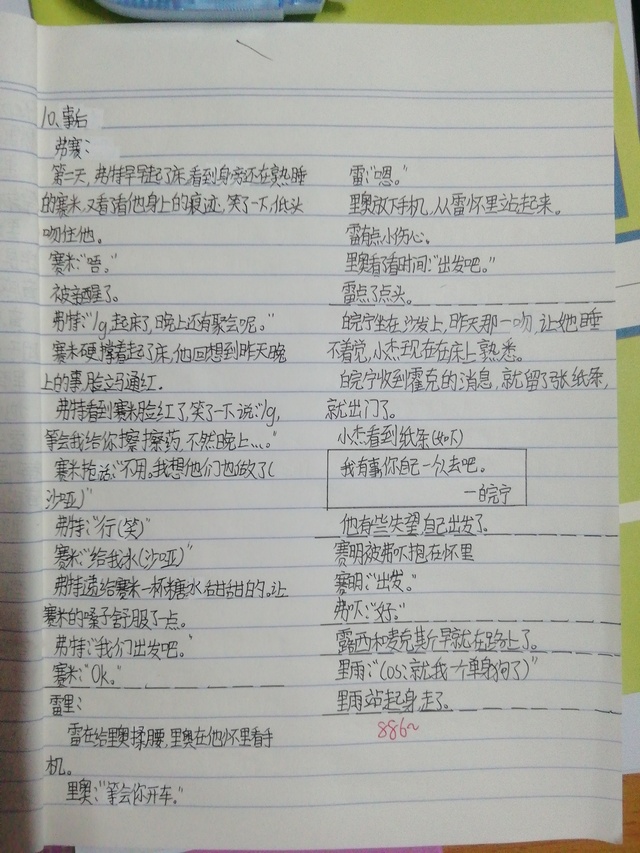 10、事后
弗赛：
第二天，弗特早早起了床，看到身旁还在熟睡
的赛米，又看了看他身上的痕迹，笑了一下，低头
吻住他。
赛米：“唔。”
被亲醒了。
弗特：“lg，起床了，晚上还有聚会呢。”
赛米硬撑着起了床，他回想到昨天晚
上的事，脸立马通红。
弗特看到赛米脸红了，笑了一下说：“lg，
等会我给你擦擦药，不然晚上....。”
赛米抢话：“不用。我想他们也做了（
沙哑）”
弗特：“行（笑）”
赛米：“给我水（沙哑）”
弗特递给赛米一杯糖水，甜甜的。让
赛米的嗓子舒服了一点。
弗特：“我们出发吧。”
赛米：“Ok。”
雷里：
雷在给里奥揉腰，里奥在他怀里看手
机。
里奥：“等会你开车。”
雷：“嗯。”
里奥放下手机，从雷怀里站起来。
雷有点小伤心。
里奥看了看时间：“出发吧。”
雷点了点头。
皖宁坐在沙发上，昨天那一吻，让她睡
不着觉，小杰现在在床上熟悉。
皖宁收到霍克的消息，就留了张纸条，
就出门了。
小杰看到纸条（如下）
我有事你自己一个人去吧。
—皖宁
他有些失望，自己出发了。
赛明被弗吓抱在怀里
赛明：“出发。”
弗吓：“好。”
露西和麦克斯早就在路上了。
里雨：“（os：就我一个单身狗了）”
里雨站起身走了。
886~